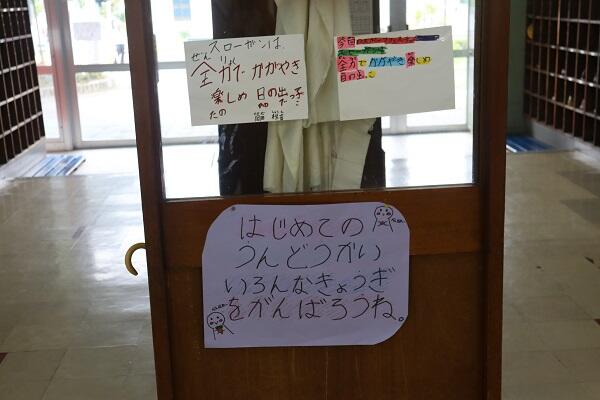 スローガンは、
ぜんりょく
全力で かがやき
楽しめ 日の出っ子
たの
全力で かがやき 楽しめ
日の出
はじめての
うんどうかい
いろんなきょうぎ
をがんばろうね。